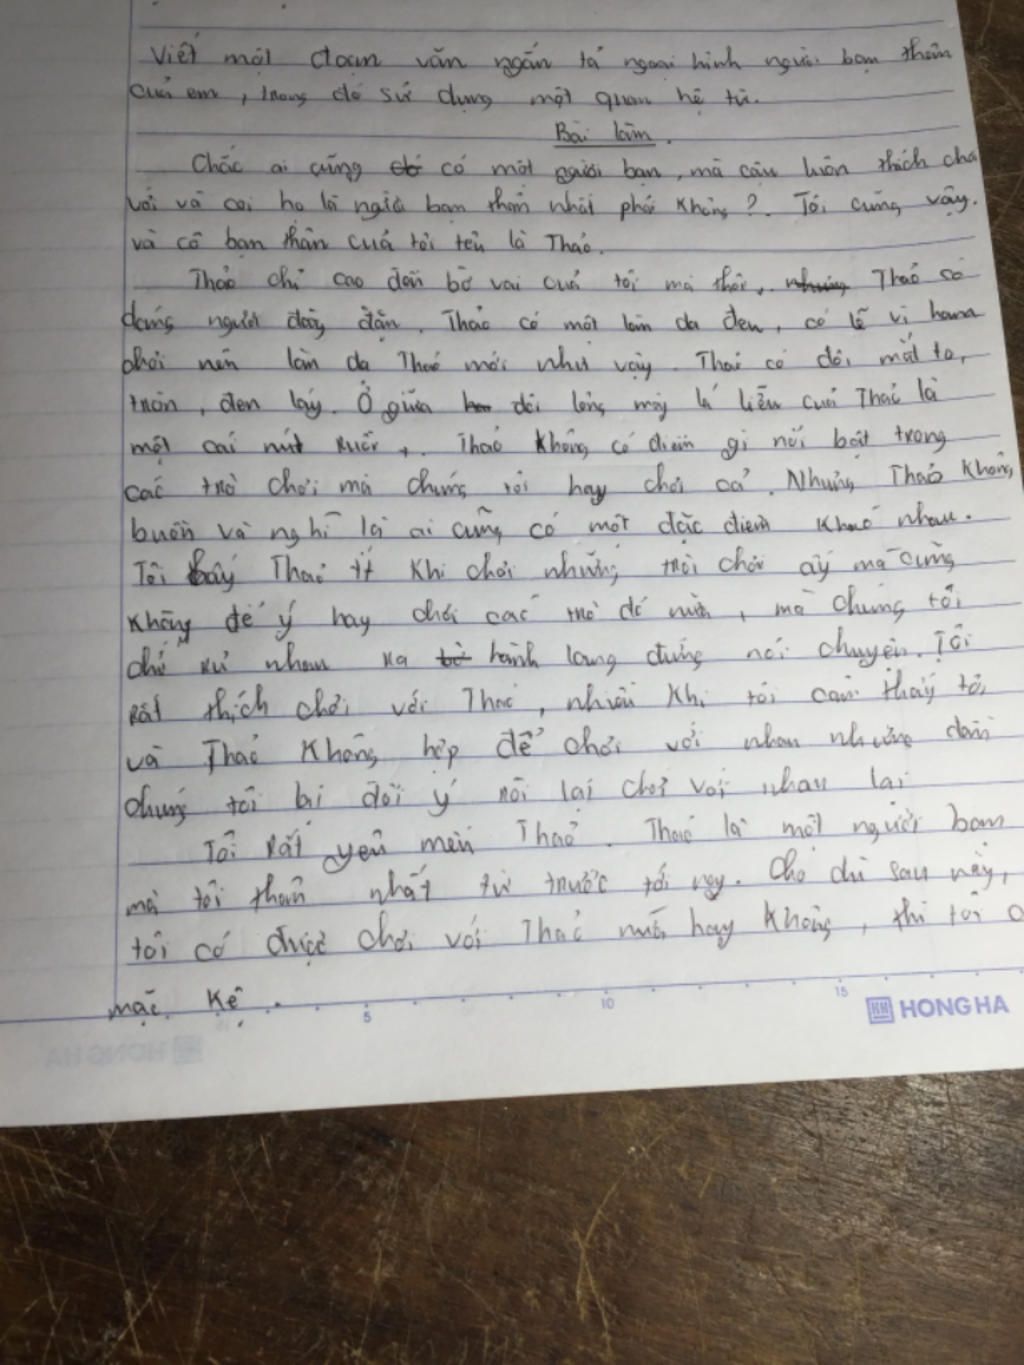 Viết một đoạn văn ngắn tả ngoại hình người bạn thân
của em, trong đó sử dụng một quan hệ từ.
Bài làm.
Chắc ai cũng có một người bạn, mà cậu luôn thích chơ
với và coi họ là người bạn thân nhất phải không?. Tôi cũng vậy.
và cô bạn thân của tôi tên là Thảo.
Thảo chỉ cao đến bờ vai của tôi mà thôi, Thảo có
dáng người đầy đặn. Thảo có một làn da đen, có lẽ vì ham
chơi nên làn da Thảo mới như vậy. Thảo có đôi mắt to,
tròn, đen láy. Ở giữa đôi lông mày lá liễu của Thảo là
một cái nút ruồi. Thảo không có điểm gì nổi bật trong
các trò chơi mà chúng tôi hay chơi cả. Nhưng Thảo không
buồn và nghĩ là ai cũng có một đặc điểm khác nhau.
Tôi thấy Thảo ít khi chơi những trò chơi ấy mà cũng
không để ý hay chơi các trò đó nữa, mà chúng tôi
chỉ rủ nhau ra hành lang đứng nói chuyện. Tôi
rất thích chơi với Thảo, nhiều khi tôi cảm thấy tôi
và Thảo không hợp để chơi với nhau nhưng dần
chúng tôi lại đổi ý rồi lại chơi với nhau lại
Tôi rất yêu mến Thảo. Thảo là một người bạn
mà tôi thân nhất từ trước tới nay. Cho dù sau này,
tôi có được chơi với Thảo nữa hay không, thì tôi
mặc kệ.
5 10 15
HONG HA